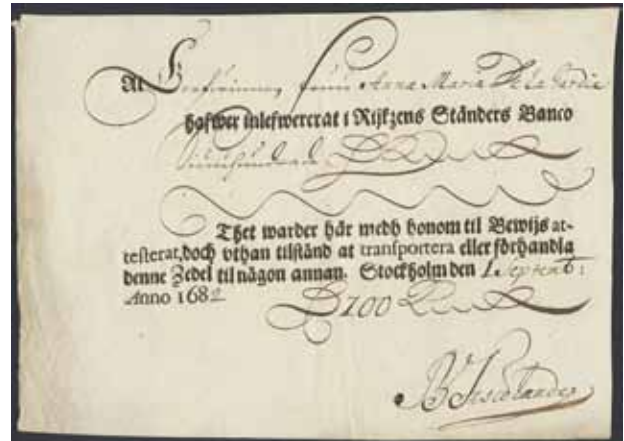 At Grefwinnan fruu Anna Maria De la Gardie
hafwer inlefwererat i Rijkzens Ständers Banco
Thet warder här medh honom til Bewijs at-
testerat, doch vthan tilstånd at transportera eller förhandla
denne Zedel til någon annan. Stockholm den 1. Septemb:
Anno 1682
700